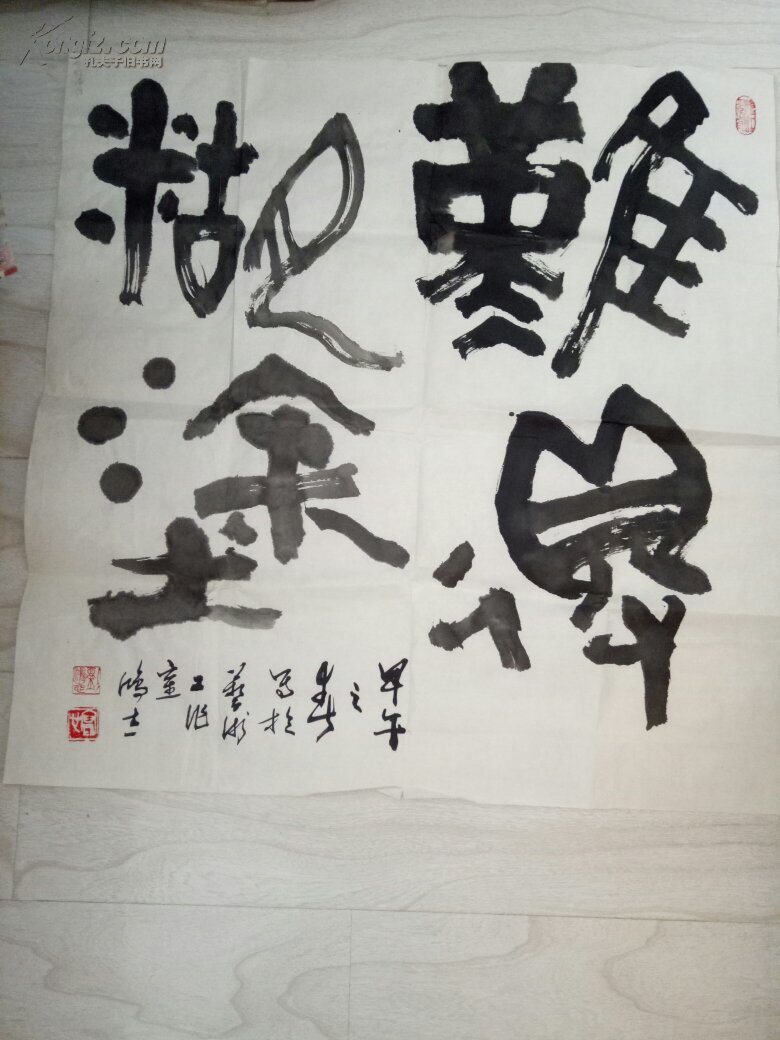 難得
糊塗
甲午
之
春
写於
藝術
工作
室
Kongfz.com
孔夫子旧书网